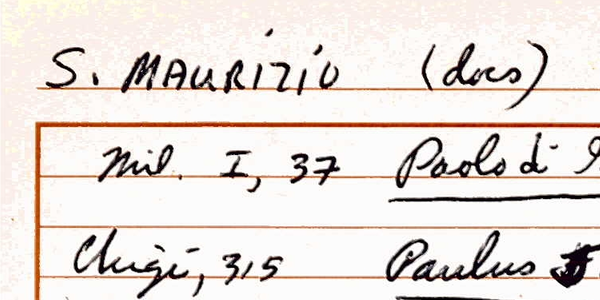 S. MAURIZIO (docs)
Mil. I, 37 Paolo di
Chigi, 315 Paulus